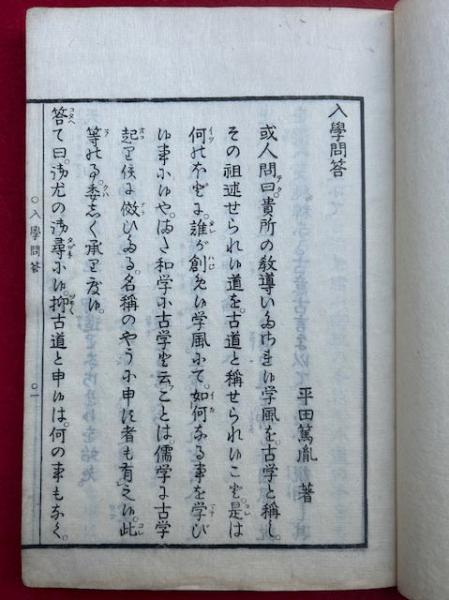 入學問答
平田篤胤 著
或人問曰貴所の教導いたされ候学風を古学と称し。
その祖述せられ候道を。古道と称せられ候こと。是は
何の本に。誰が創めし学風にて。如何なる事を学び
候事に候や。また和学に古学と云ことは。儒学に古学
起り候に倣ひたる。名称のやうに申す者も有之候。此
等の事。委しく承り度候。
答て曰。御尤の御尋に候。抑古道と申候は。何の事もなく。
○入學問答
○一